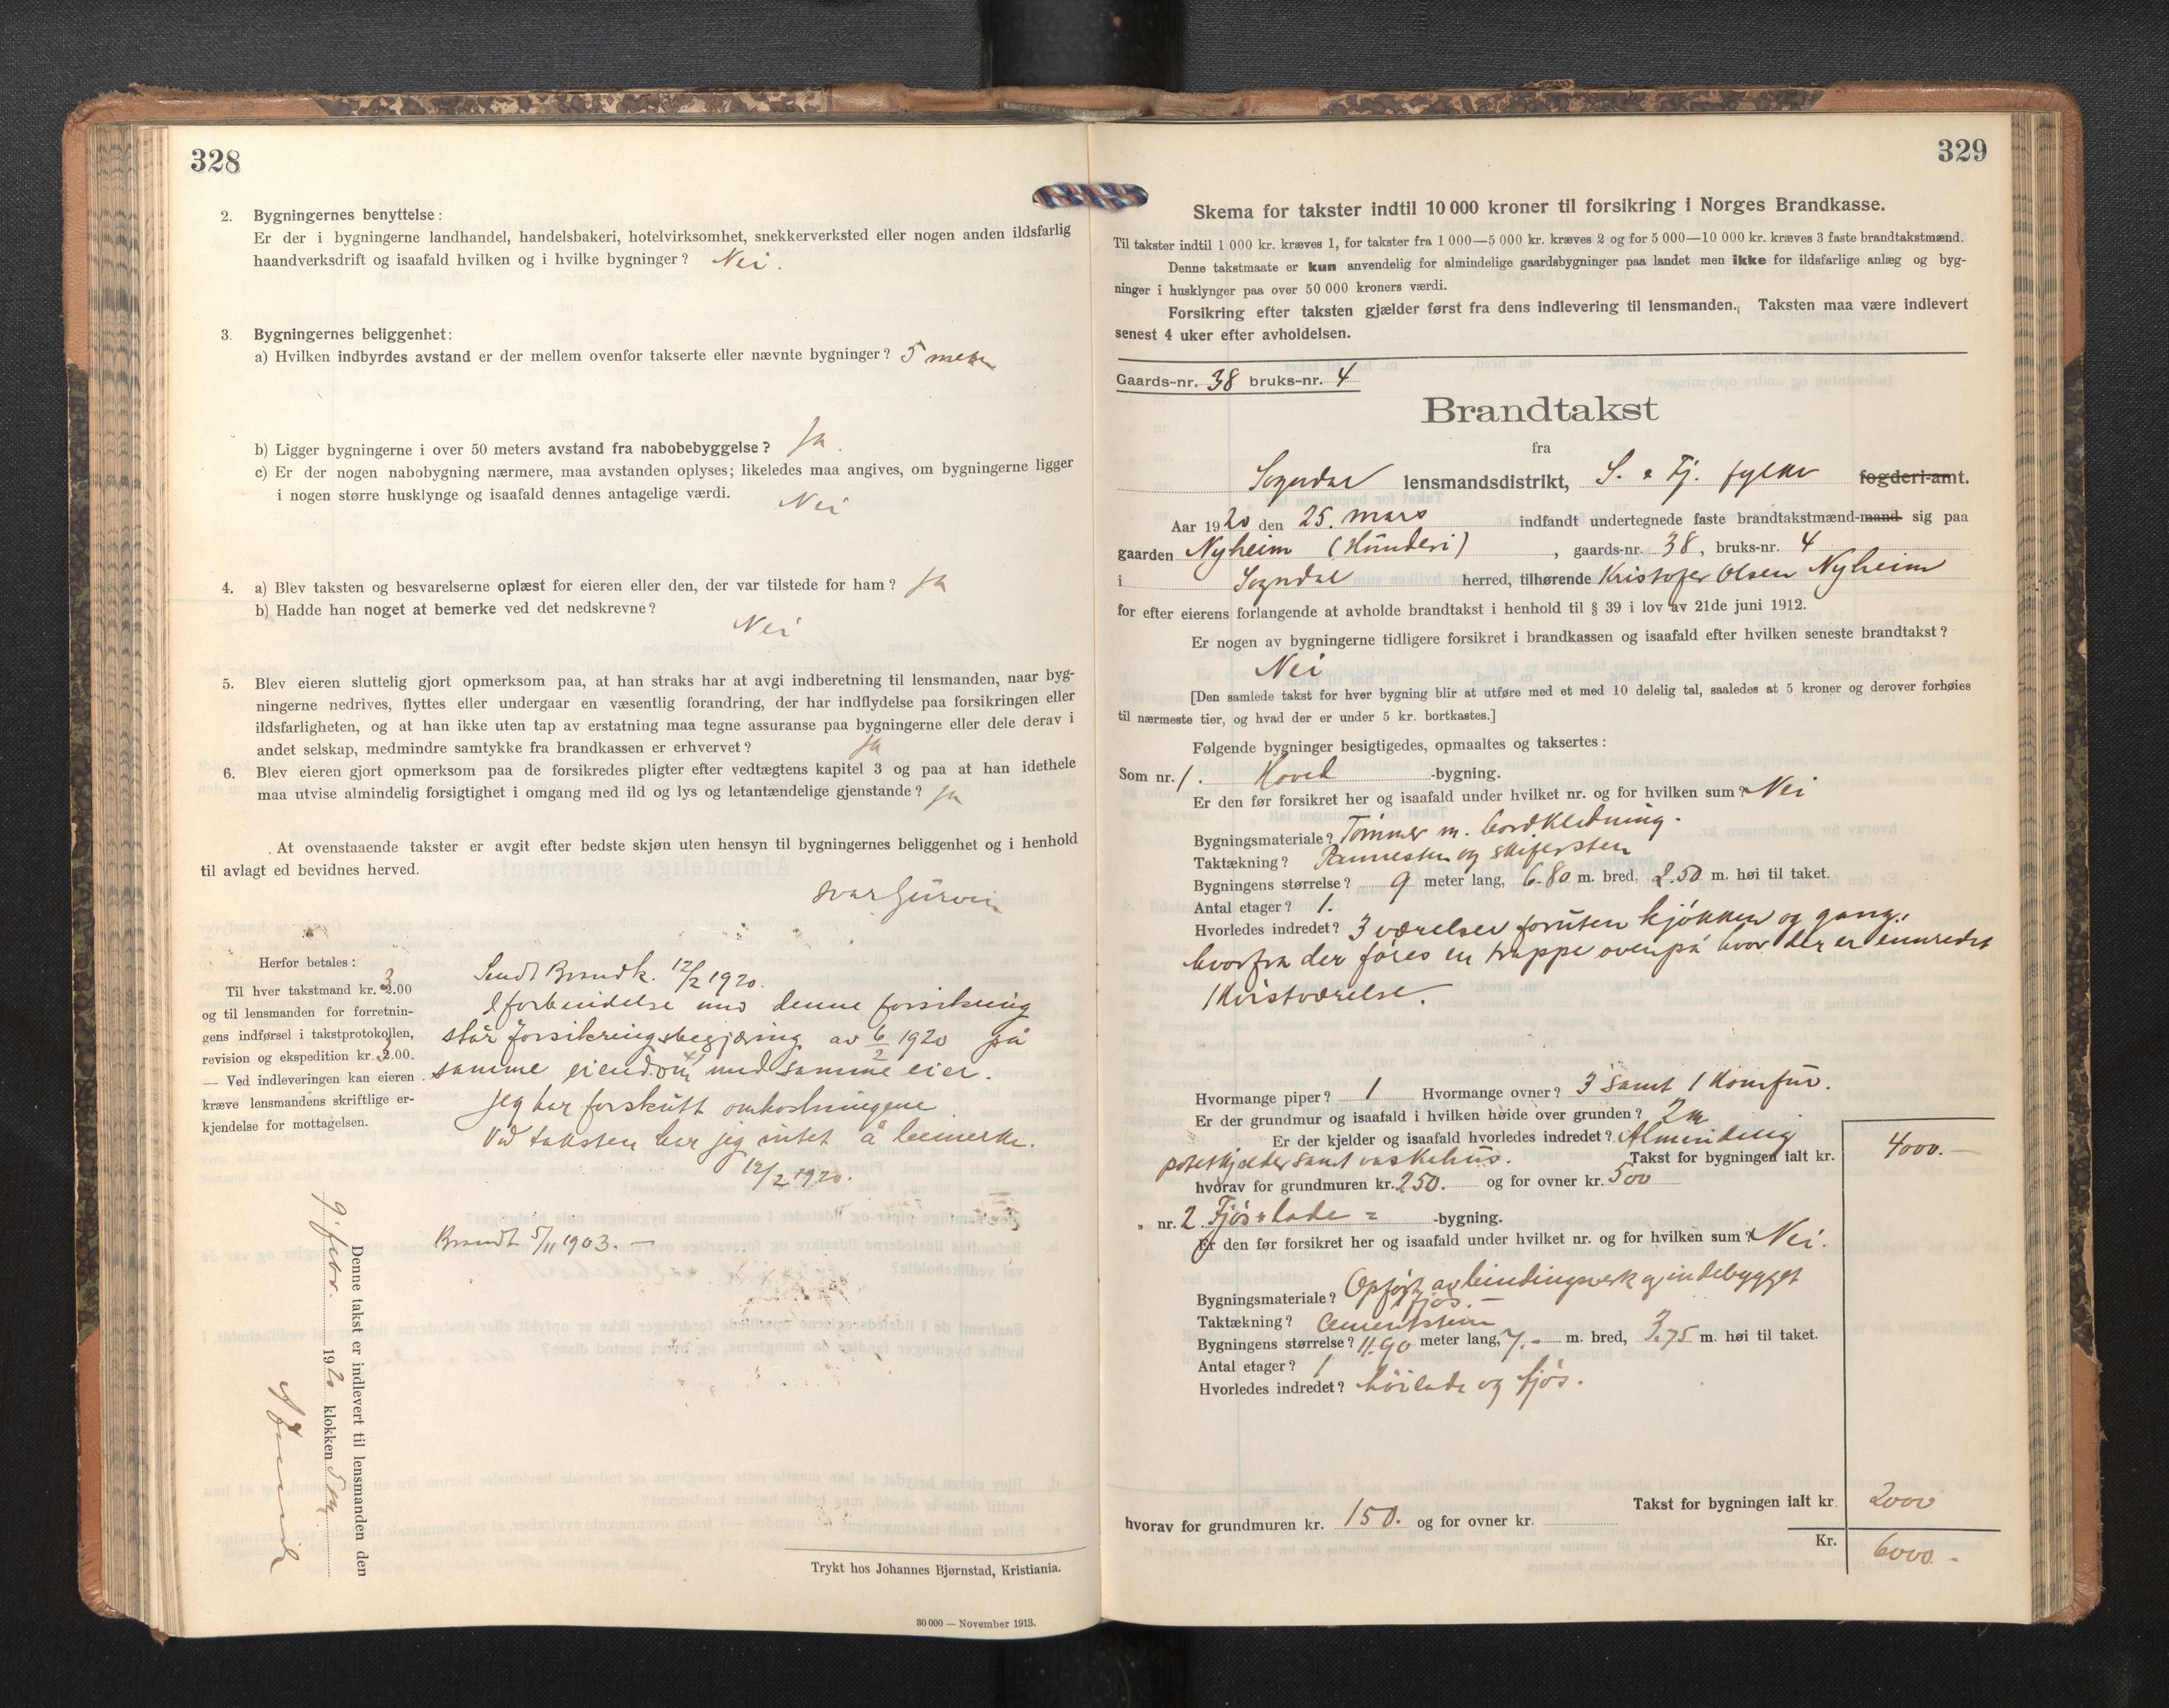 328
2. Bygningernes benyttelse:
Er der i bygningerne landhandel, handelsbakeri, hotelvirksomhet, snekkerverksted eller nogen anden ildsfarlig
haandverksdrift og isaafald hvilken og i hvilke bygninger? Nei.
3. Bygningernes beliggenhet:
a) Hvilken indbyrdes avstand er der mellem ovenfor takserte eller nævnte bygninger? 5 meter
b) Ligger bygningerne i over 50 meters avstand fra nabobebyggelse? Ja.
c) Er der nogen nabobygning nærmere, maa avstanden oplyses; likeledes maa angives, om bygningerne ligger
i nogen større husklynge og isaafald dennes antagelige værdi. Nei
4. a) Blev taksten og besvarelserne oplæst for eieren eller den, der var tilstede for ham? Ja
b) Hadde han noget at bemerke ved det nedskrevne?
Nei
5. Blev eieren sluttelig gjort opmerksom paa, at han straks har at avgi indberetning til lensmanden, naar byg-
ningerne nedrives, flyttes eller undergaar en væsentlig forandring, der har indflydelse paa forsikringen eller
ildsfarligheten, og at han ikke uten tap av erstatning maa tegne assuranse paa bygningerne eller dele derav i
andet selskap, medmindre samtykke fra brandkassen er erhvervet? Ja
6. Blev eieren gjort opmerksom paa de forsikredes pligter efter vedtægtens kapitel 3 og paa at han idethele
maa utvise almindelig forsigtighet i omgang med ild og lys og letantændelige gjenstande? Ja
At ovenstaaende takster er avgit efter bedste skjøn uten hensyn til bygningernes beliggenhet og i henhold
til avlagt ed bevidnes herved.
Herfor betales:
Til hver takstmand kr. 3.00
og til lensmanden for forretnin-
gens indførsel i takstprotokollen,
revision og ekspedition kr. 3.00.
— Ved indleveringen kan eieren
kræve lensmandens skriftlige er-
kjendelse for mottagelsen.
Sendt Brandk. 12/2 1920.
I forbindelse med denne forsikring
står forsikringsbegjæring av 6/2 1920 på
samme eiendom med samme eier.
Jeg har forskutt omkostningene
Ved taksten har jeg intet å bemerke.
12/2 1920.
Brandt 5/11 1903. —
Denne takst er indlevert til lensmanden den
9. febr. 1920 klokken 5 m.
Trykt hos Johannes Bjørnstad, Kristiania.
30 000 — November 1913.
329
Skema for takster indtil 10 000 kroner til forsikring i Norges Brandkasse.
Til takster indtil 1 000 kr. kræves 1, for takster fra 1 000—5 000 kr. kræves 2 og for 5 000—10 000 kr. kræves 3 faste brandtakstmænd.
Denne takstmaate er kun anvendelig for almindelige gaardsbygninger paa landet men ikke for ildsfarlige anlæg og byg-
ninger i husklynger paa over 50 000 kroners værdi.
Forsikring efter taksten gjælder først fra dens indlevering til lensmanden. Taksten maa være indlevert
senest 4 uker efter avholdelsen.
Gaards-nr. 38 bruks-nr. 4
Brandtakst
fra
Sogndal lensmandsdistrikt, S. & Fj. fylke fogderi-amt.
Aar 1920 den 25. mars indfandt undertegnede faste brandtakstmænd-mand sig paa
gaarden Nyheim (Hunderi), gaards-nr. 38, bruks-nr. 4
i Sogndal herred, tilhørende Kristofer Olsen Nyheim
for efter eierens forlangende at avholde brandtakst i henhold til § 39 i lov av 21de juni 1912.
Er nogen av bygningerne tidligere forsikret i brandkassen og isaafald efter hvilken seneste brandtakst?
Nei
[Den samlede takst for hver bygning blir at utføre med et med 10 delelig tal, saaledes at 5 kroner og derover forhøies
til nærmeste tier, og hvad der er under 5 kr. bortkastes.]
Følgende bygninger besigtigedes, opmaaltes og taksertes:
Som nr. 1. Hoved -bygning.
Er den før forsikret her og isaafald under hvilket nr. og for hvilken sum? Nei
Bygningsmateriale? Tømmer m. bordklædning.
Taktækning? Pannesten og skifersten
Bygningens størrelse? 9 meter lang, 6.80 m. bred, 2.50 m. høi til taket.
Antal etager? 1.
Hvorledes indredet? 3 værelser foruten kjøkken og gang,
hvorfra der føres en trappe ovenpå hvor der er innredet
1 kvistværelse.
Hvormange piper? 1 Hvormange ovner? 3 samt 1 komfur.
Er der grundmur og isaafald i hvilken høide over grunden? 2 m
Er der kjelder og isaafald hvorledes indredet? Almindelig
potetkjelder samt vaskehus. Takst for bygningen ialt kr. 4000.—
hvorav for grundmuren kr. 250. og for ovner kr. 500
„ nr. 2 Fjøs & lade = -bygning.
Er den før forsikret her og isaafald under hvilket nr. og for hvilken sum? Nei.
Bygningsmateriale? Opført av bindingsverk og indebygget
fjøs.—
Taktækning? Cementsten
Bygningens størrelse? 11.90 meter lang, 7.- m. bred, 3.75 m. høi til taket.
Antal etager? 1
Hvorledes indredet? høilade og fjøs.
Takst for bygningen ialt kr. 2000
hvorav for grundmuren kr. 150. og for ovner kr.
Kr. 6000.-